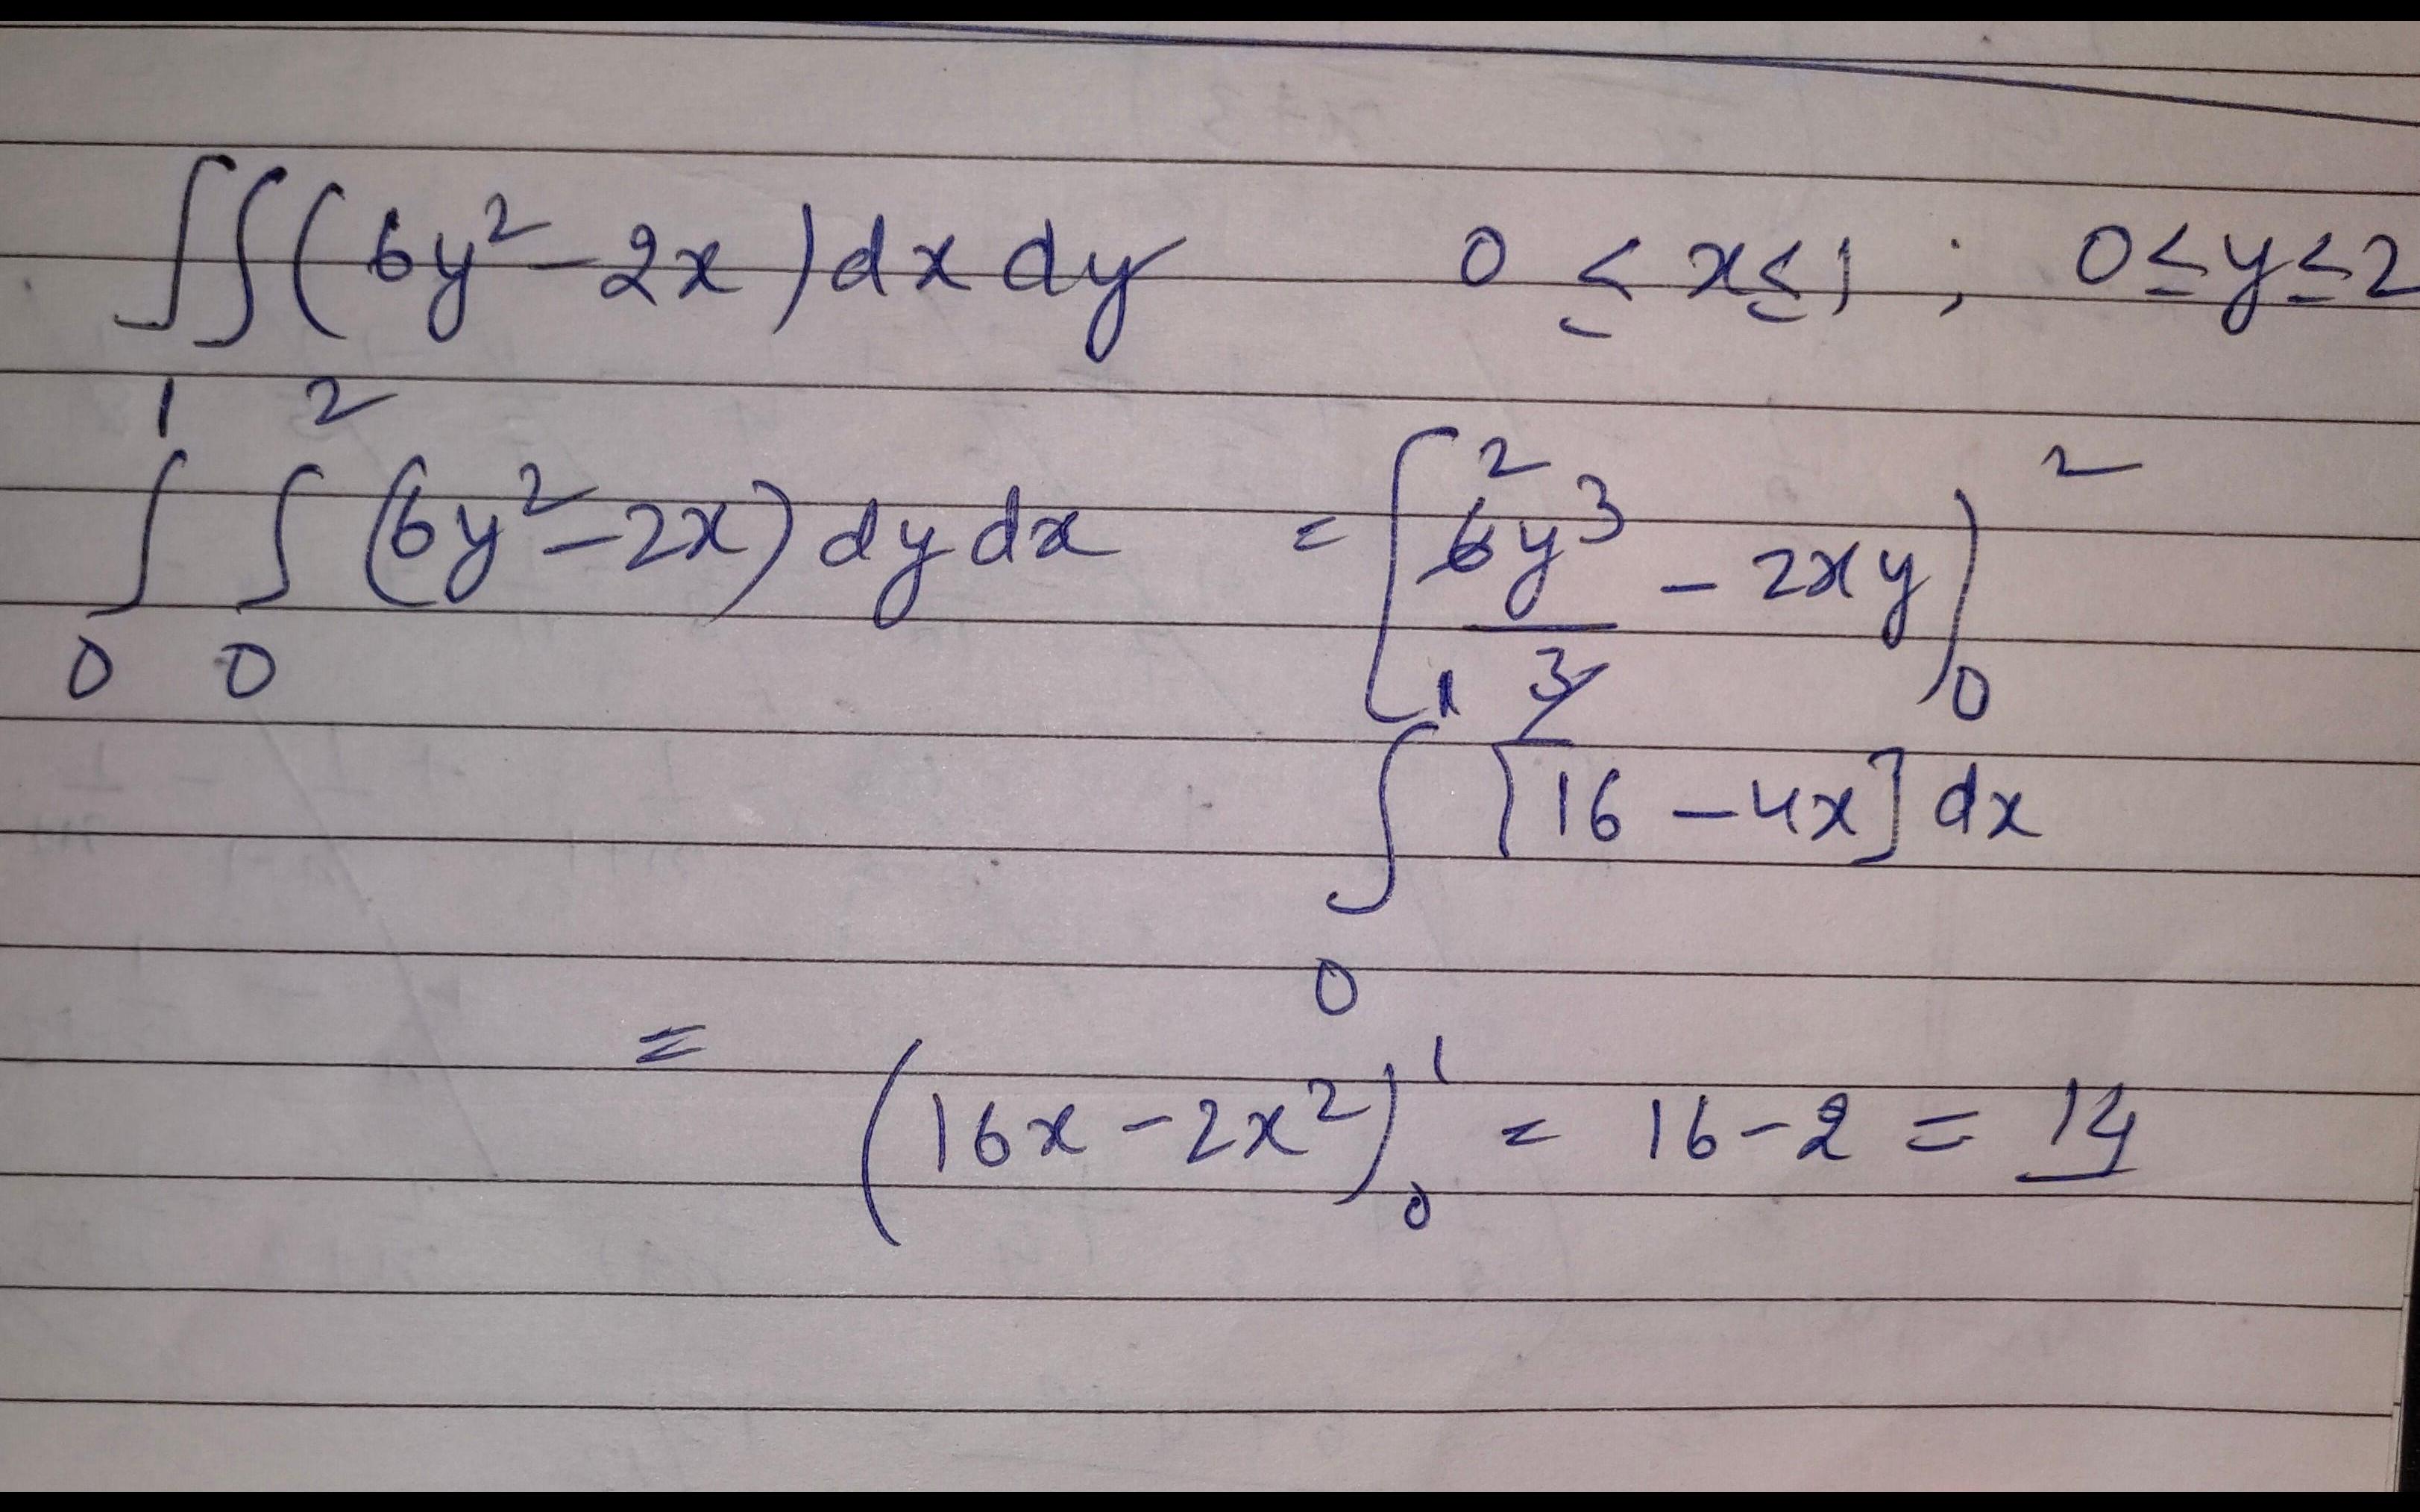 ∫∫(6y²-2x)dx dy 0 ≤ x ≤ 1 ; 0≤y≤2
∫₀¹ ∫₀² (6y²-2x) dy dx = [6y³/3 - 2xy)₀²
∫₀¹ [16 - 4x] dx
= (16x - 2x²)₀¹ = 16 - 2 = 14